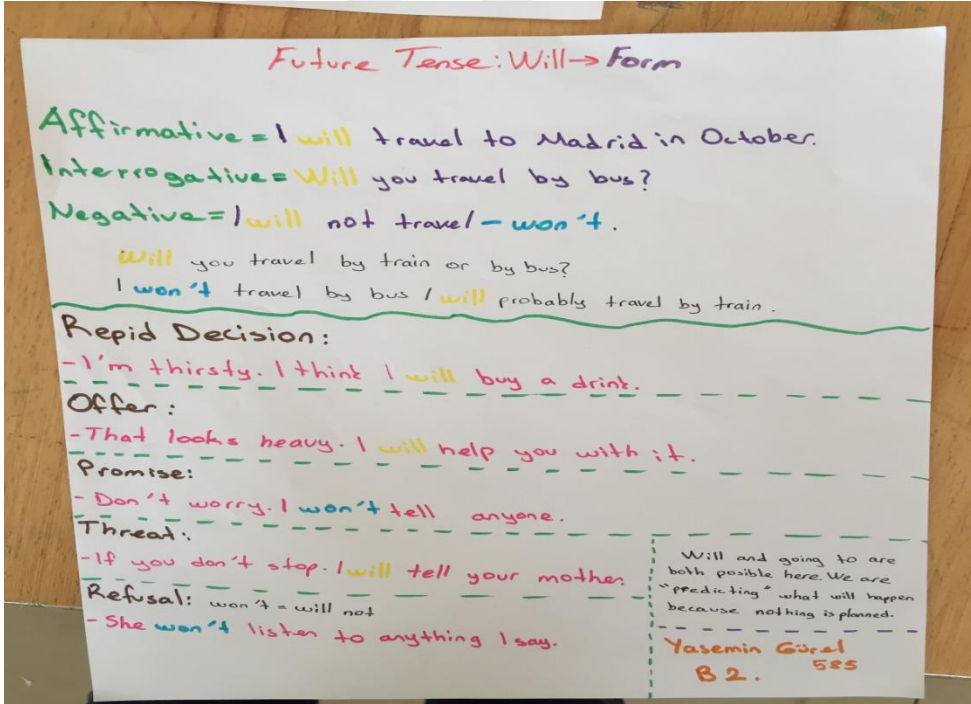 Future Tense: Will→ Form
Affirmative = I will travel to Madrid in October.
Interrogative = Will you travel by bus?
Negative = I will not travel - won't.
Will you travel by train or by bus?
I won't travel by bus I will probably travel by train.
Repid Decision:
- I'm thirsty. I think I will buy a drink.
Offer:
- That looks heavy. I will help you with it.
Promise:
- Don't worry. I won't tell anyone.
Threat:
- If you don't stop. I will tell your mother.
Refusal: won't = will not
- She won't listen to anything I say.
Will and going to are
both posible here. We are
"predicting" what will happen
because nothing is planned.
Yasemin Gürel
585
B2.